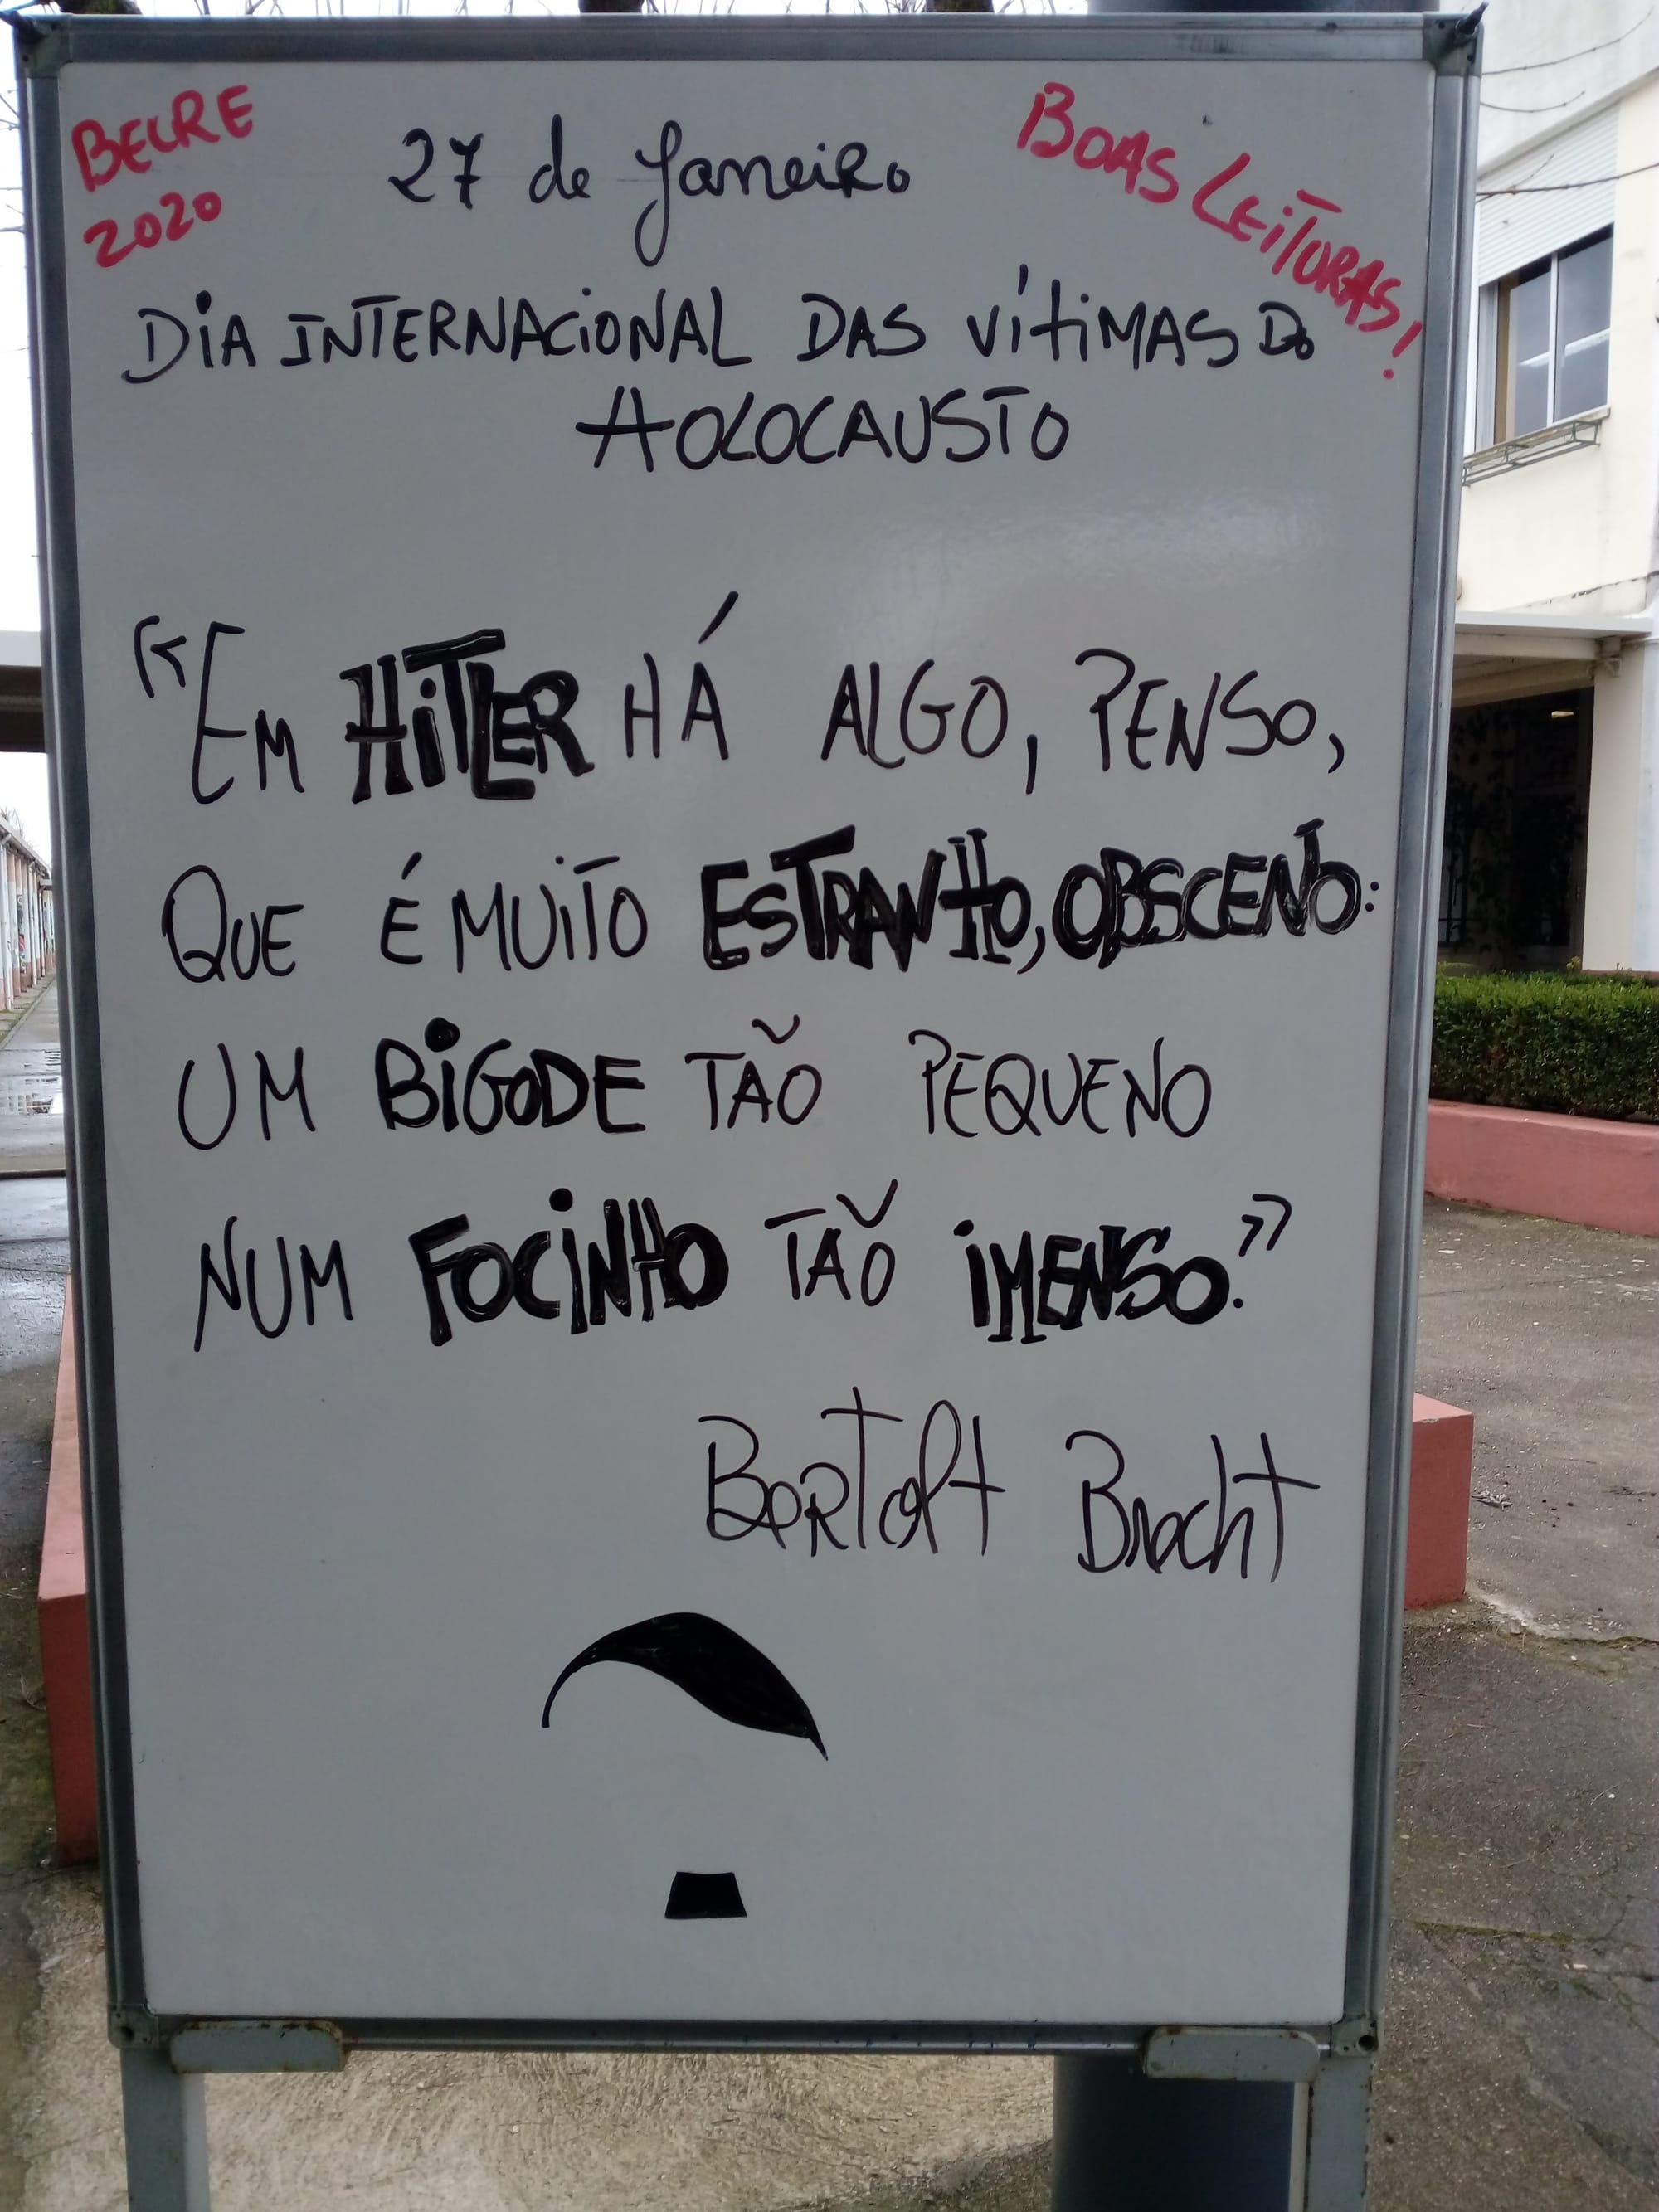 BECRE
2020
27 de Janeiro
BOAS LEITURAS!
DIA INTERNACIONAL DAS VÍTIMAS DO
HOLOCAUSTO
"EM HITLER HÁ ALGO, PENSO,
QUE É MUITO ESTRANHO, OBSCENO:
UM BIGODE TÃO PEQUENO
NUM FOCINHO TÃO IMENSO."
Bertolt Brecht